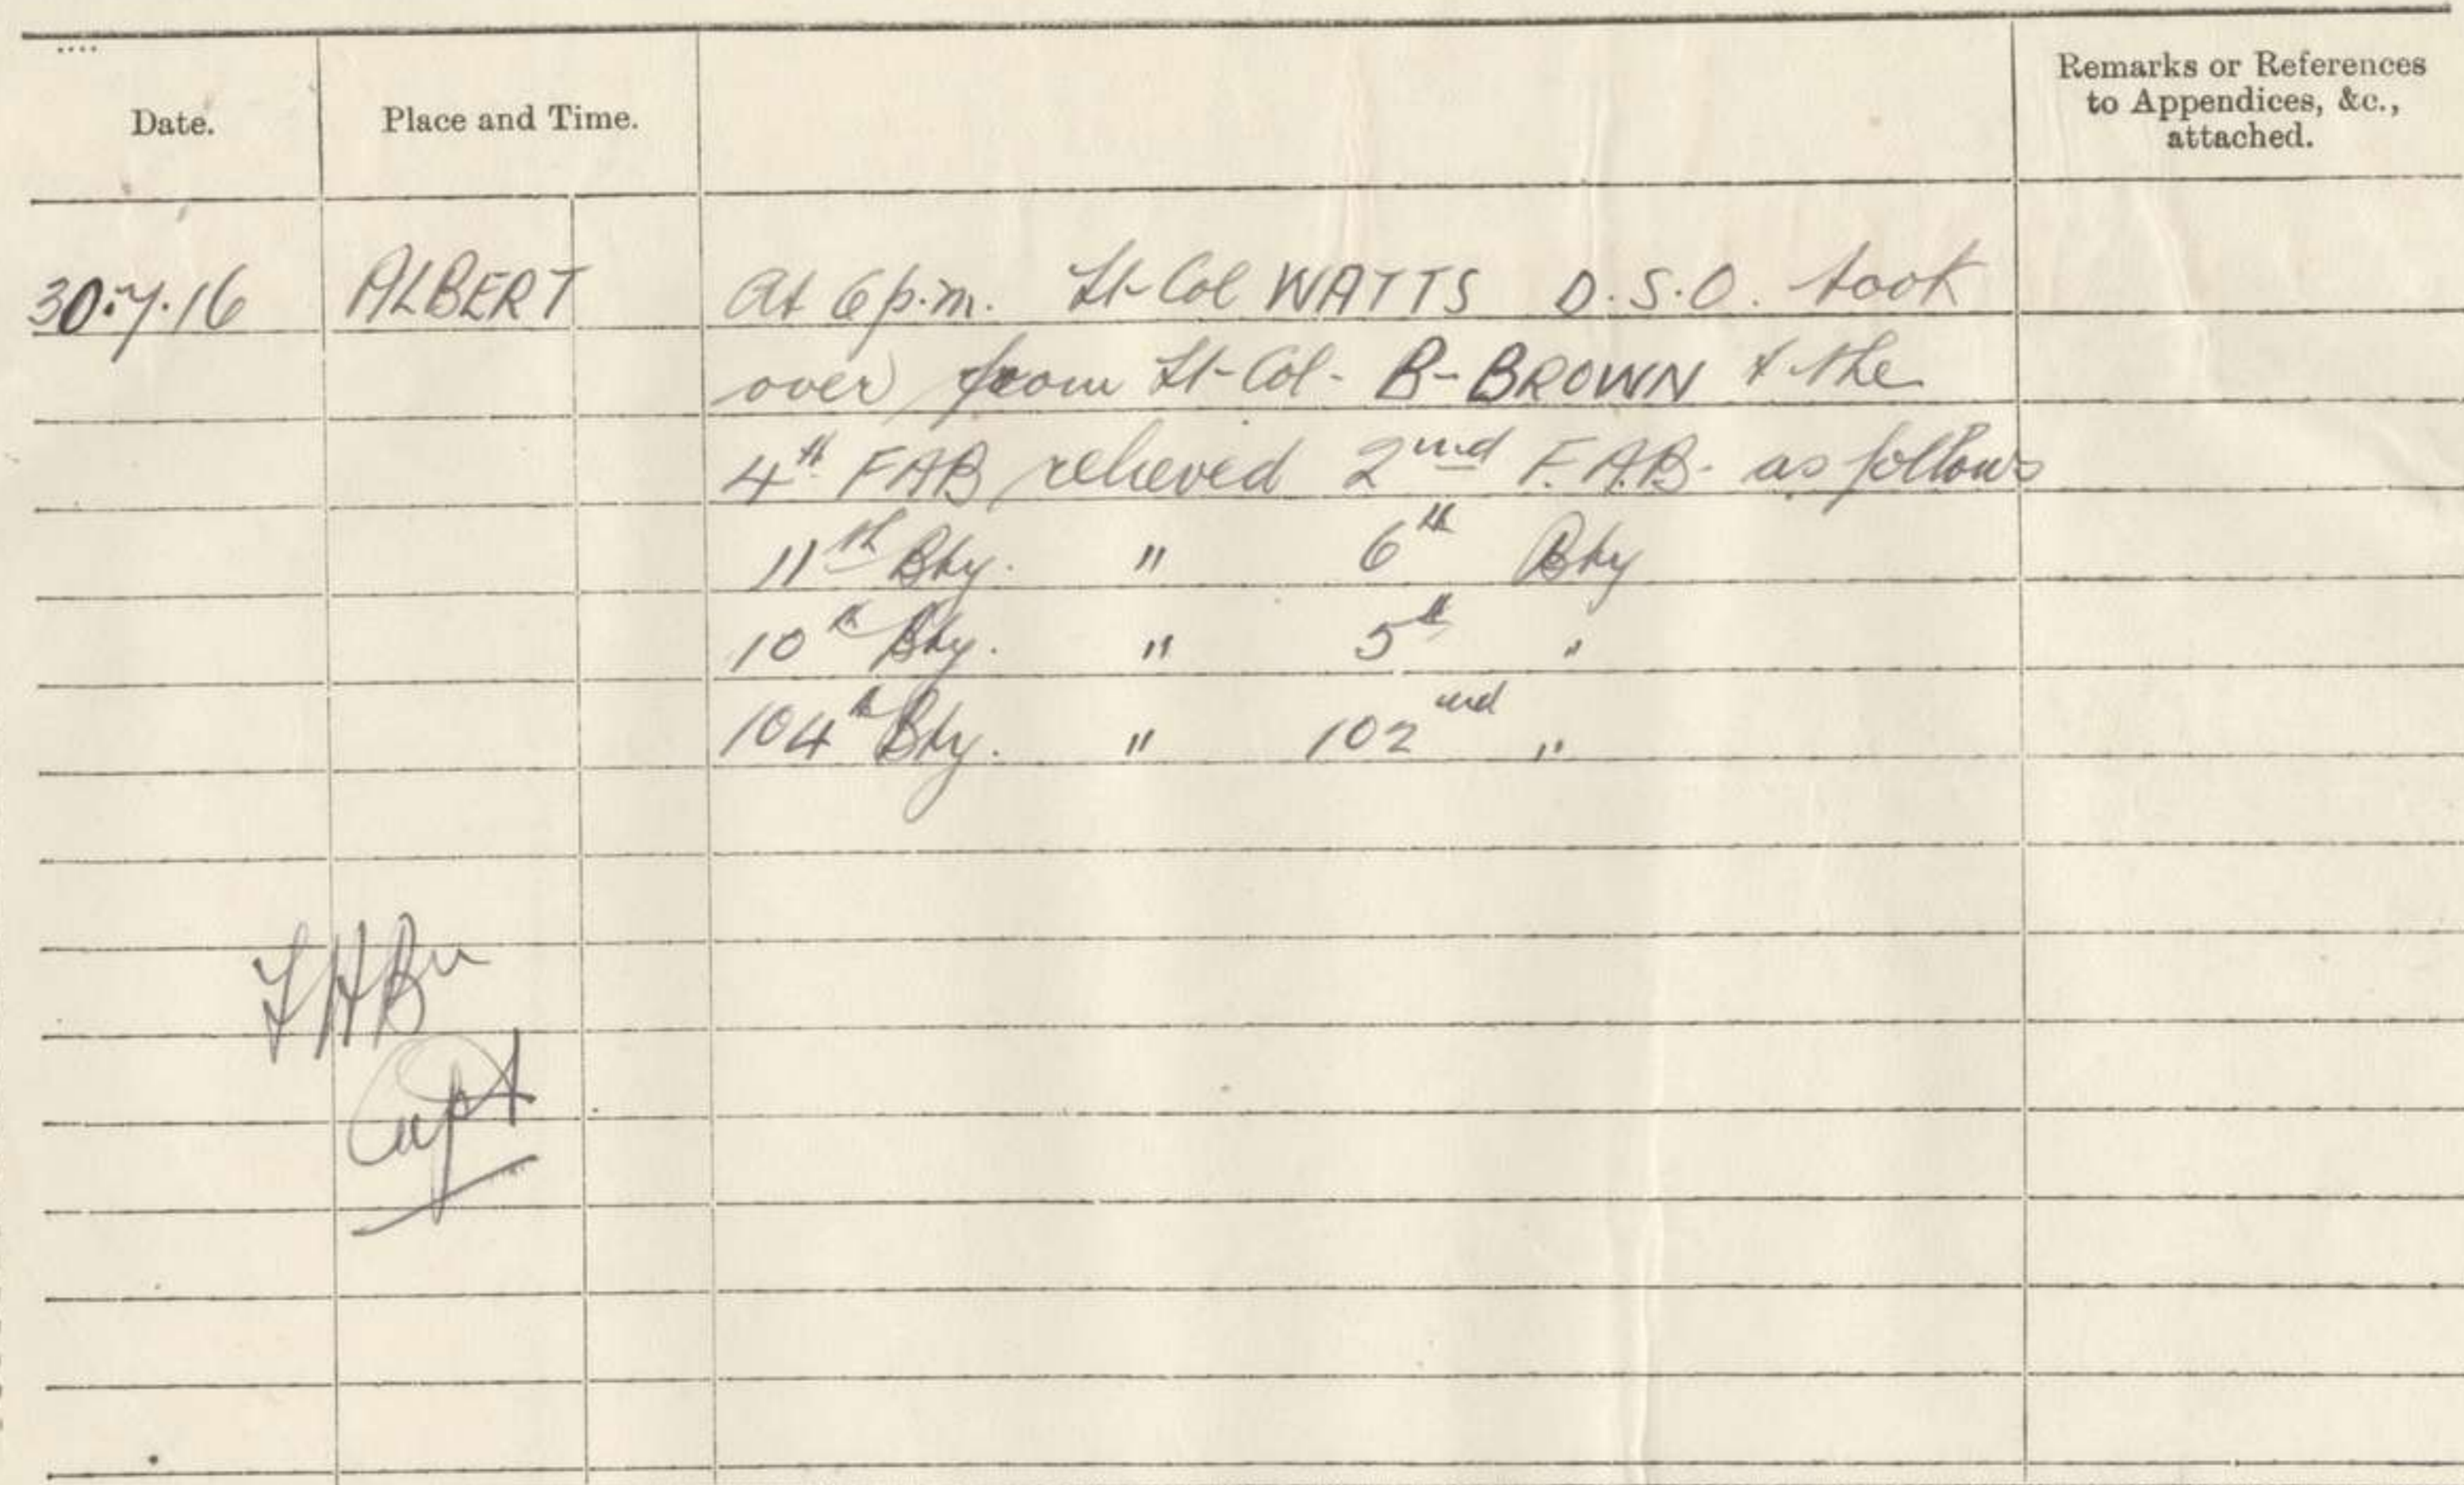 Date.
Place and Time.
Remarks or References
to Appendices, &c.,
attached.
30.7.16 ALBERT At 6 p.m. Lt-Col WATTS D.S.O. took
over from Lt-Col- B-BROWN & the
4th FAB relieved 2nd F.A.B. as follows
11th Bty. " 6th Bty
10th Bty. " 5th "
104th Bty. " 102nd "
Capt